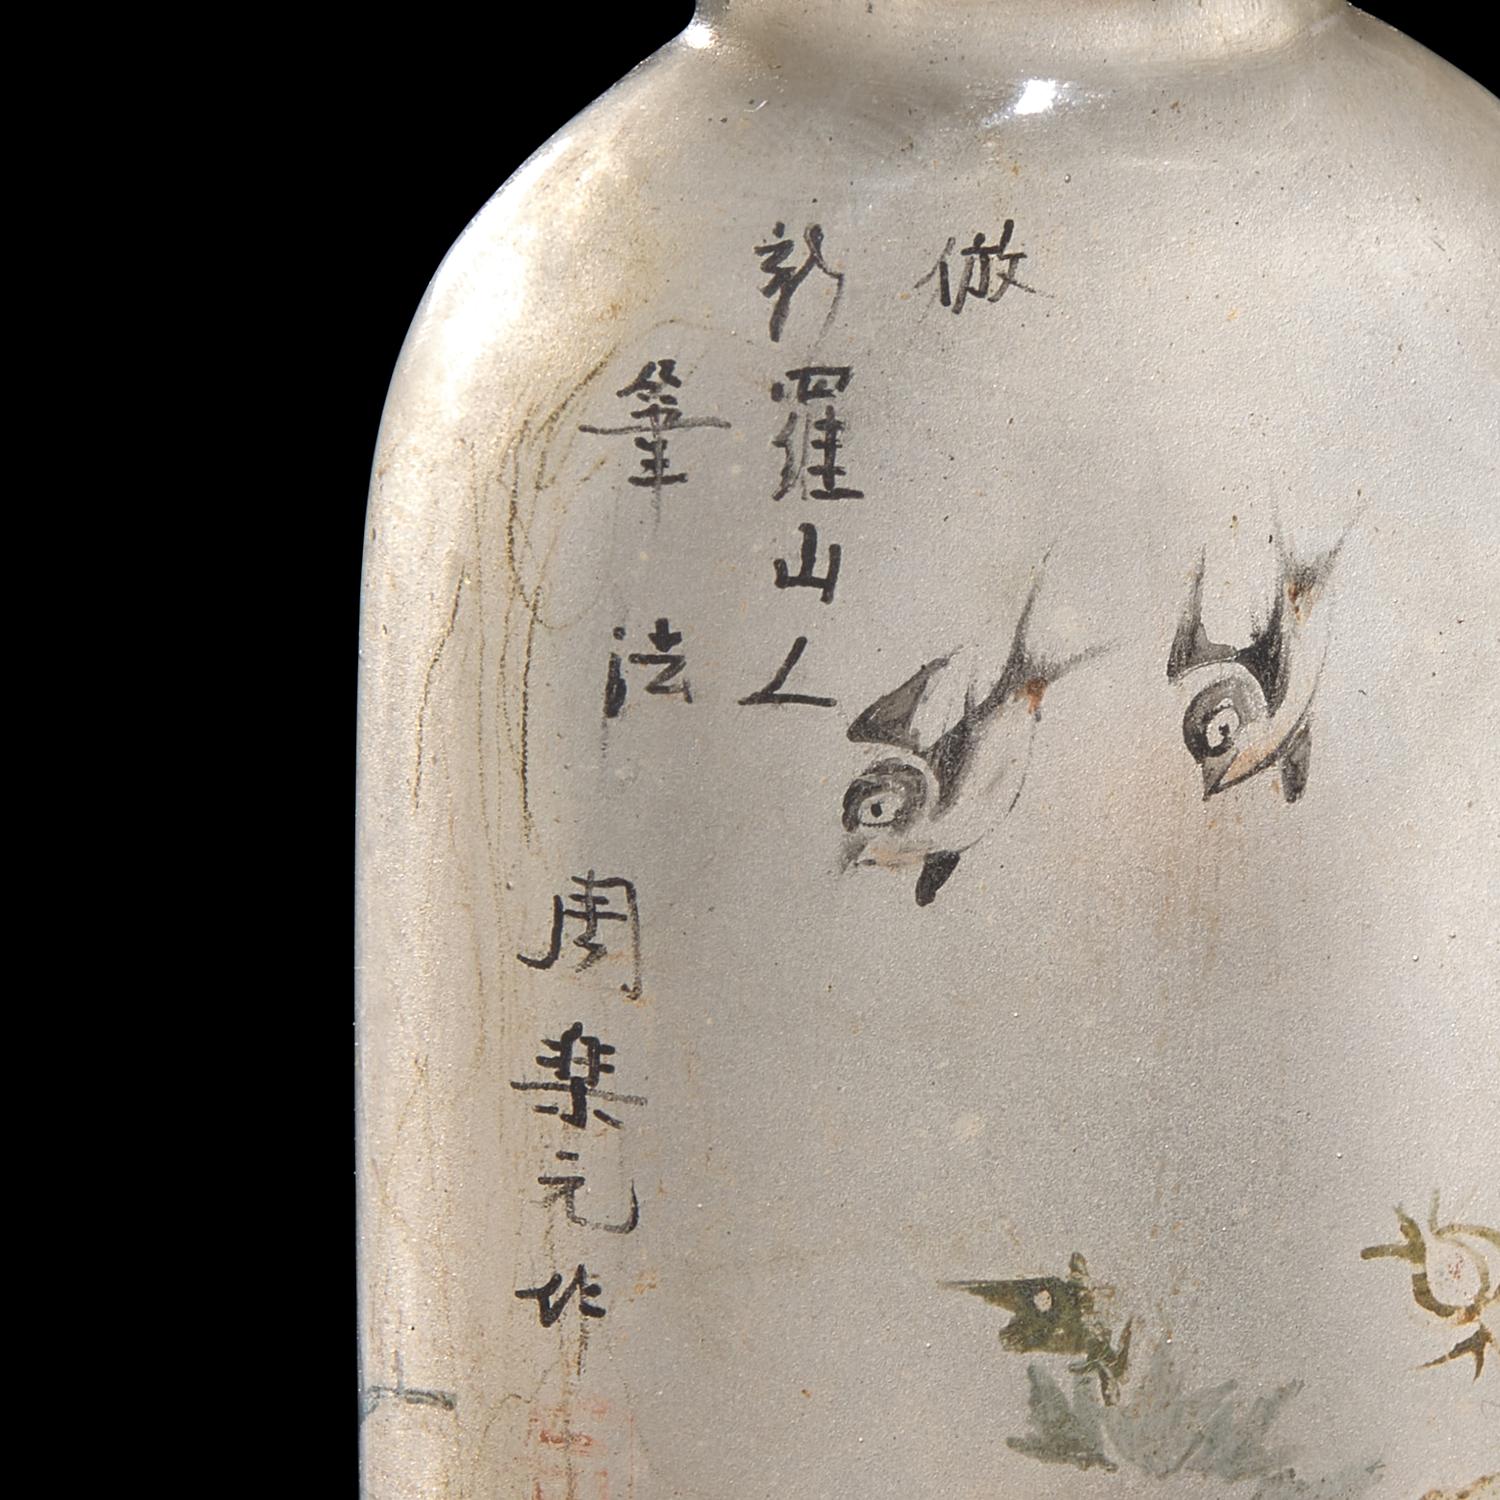 倣
新羅山人
筆法
周樂元作